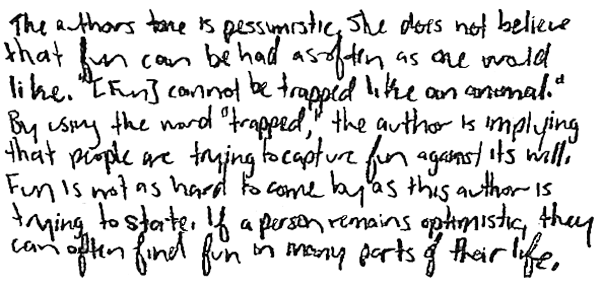 The authors tone is pessimistic. She does not believe
that fun can be had as often as one would
like. "[Fun] cannot be trapped like an animal."
By using the word "trapped," the author is implying
that people are trying to capture fun against its will.
Fun is not as hard to come by as this author is
trying to state. If a person remains optimistic, they
can often find fun in many parts of their life.